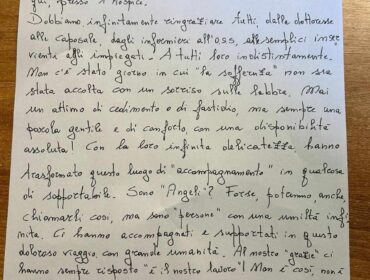 qui, presso l'hospice.
Dobbiamo, infinitamente ringraziare tutti, dalle dottoresse
alle caposale, dagli infermieri all'O.S.S., alle semplici inser
vienti agli impiegati. A tutti loro indistintamente.
Non c'è stato giorno in cui "la sofferenza" non sia
stata accolta con un sorriso sulle labbra. Mai
un attimo di cedimento e di fastidio, ma sempre una
parola gentile e di conforto, con una disponibilità
assoluta! Con la loro infinita delicatezza, hanno
trasformato questo luogo di "accompagnamento" in qualcosa
di sopportabile. Sono "Angeli"? Forse, potranno, anche,
chiamarli così, ma sono "persone" con una umiltà infi
nita. Ci hanno accompagnati e supportati in questo
doloroso viaggio, con grande umanità. Al nostro "grazie" ci
hanno sempre risposto "è il nostro lavoro"! Non è così, non è